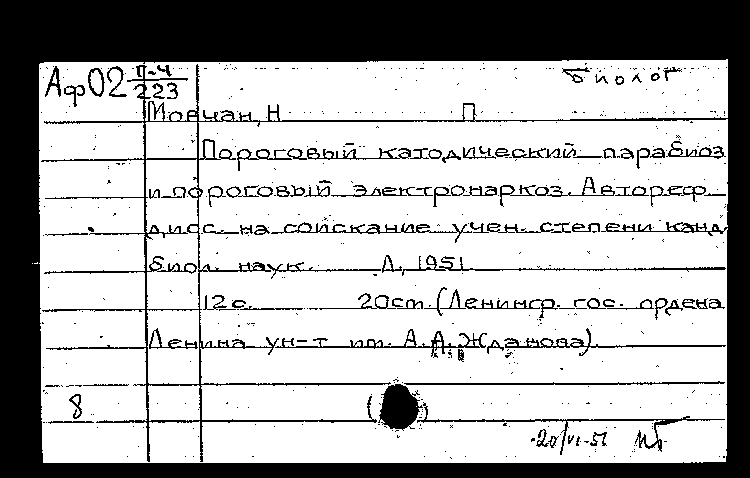 Аф02 П-4/223
биолог
Мовчан, Н П
Пороговый катодический парабиоз
и пороговый электронаркоз. Автореф.
дисс. на соискание учен. степени канд
биол. наук. Л., 1951
12с. 20см. (Ленингр. гос. ордена
Ленина ун-т им. А.А. Жданова).
8
20/VI-51